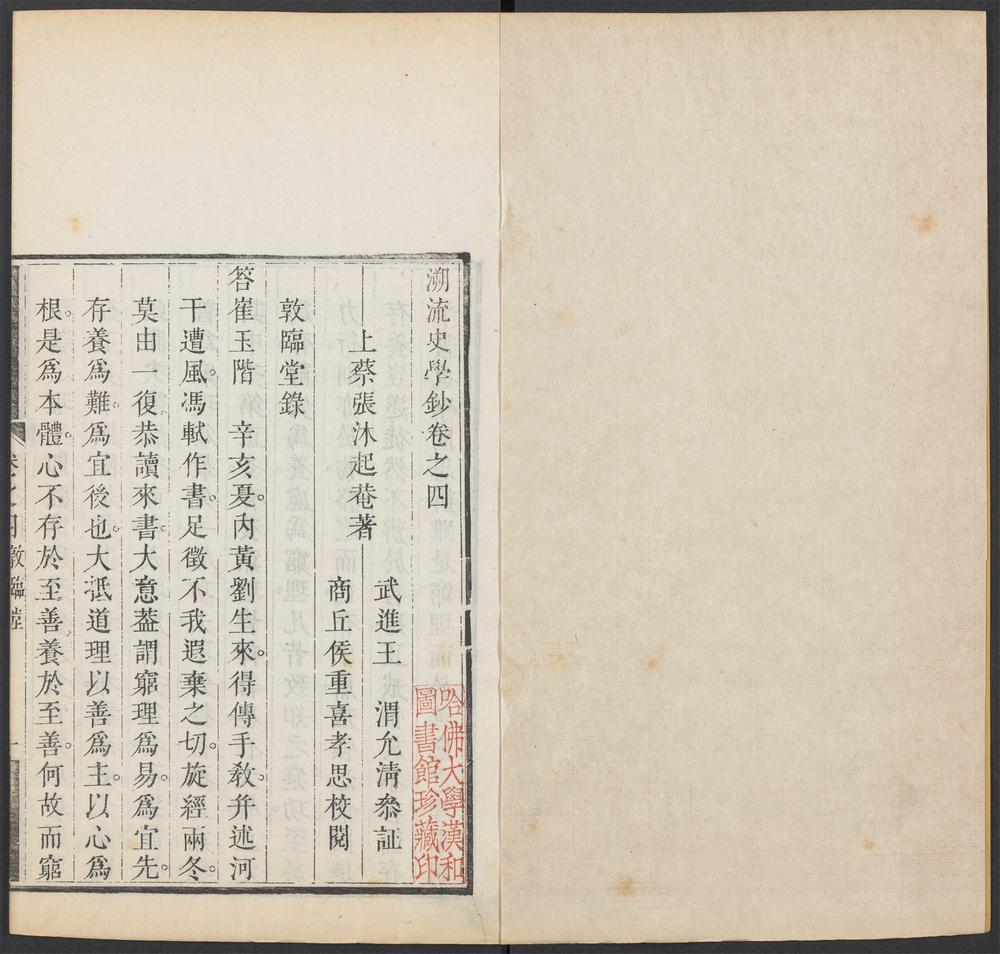 溯流史學鈔卷之四
哈佛大學漢和
圖書館珍藏印
武進王　渭允清叅証
上蔡張沐起菴著
商丘侯重喜孝思校閱
敦臨堂錄
答崔玉階　辛亥夏。內黃劉生來。得傳手敎。幷述河
干遭風。馮軾作書。足徵不我遐棄之切。旋經兩冬。
莫由一復恭讀來書。大意葢謂窮理爲易。爲宜先。
存養爲難。爲宜後也。大抵道理以善爲主。以心爲
根。是爲本體。心不存於至善養於至善。何故而窮
卷之四敦臨堂　一